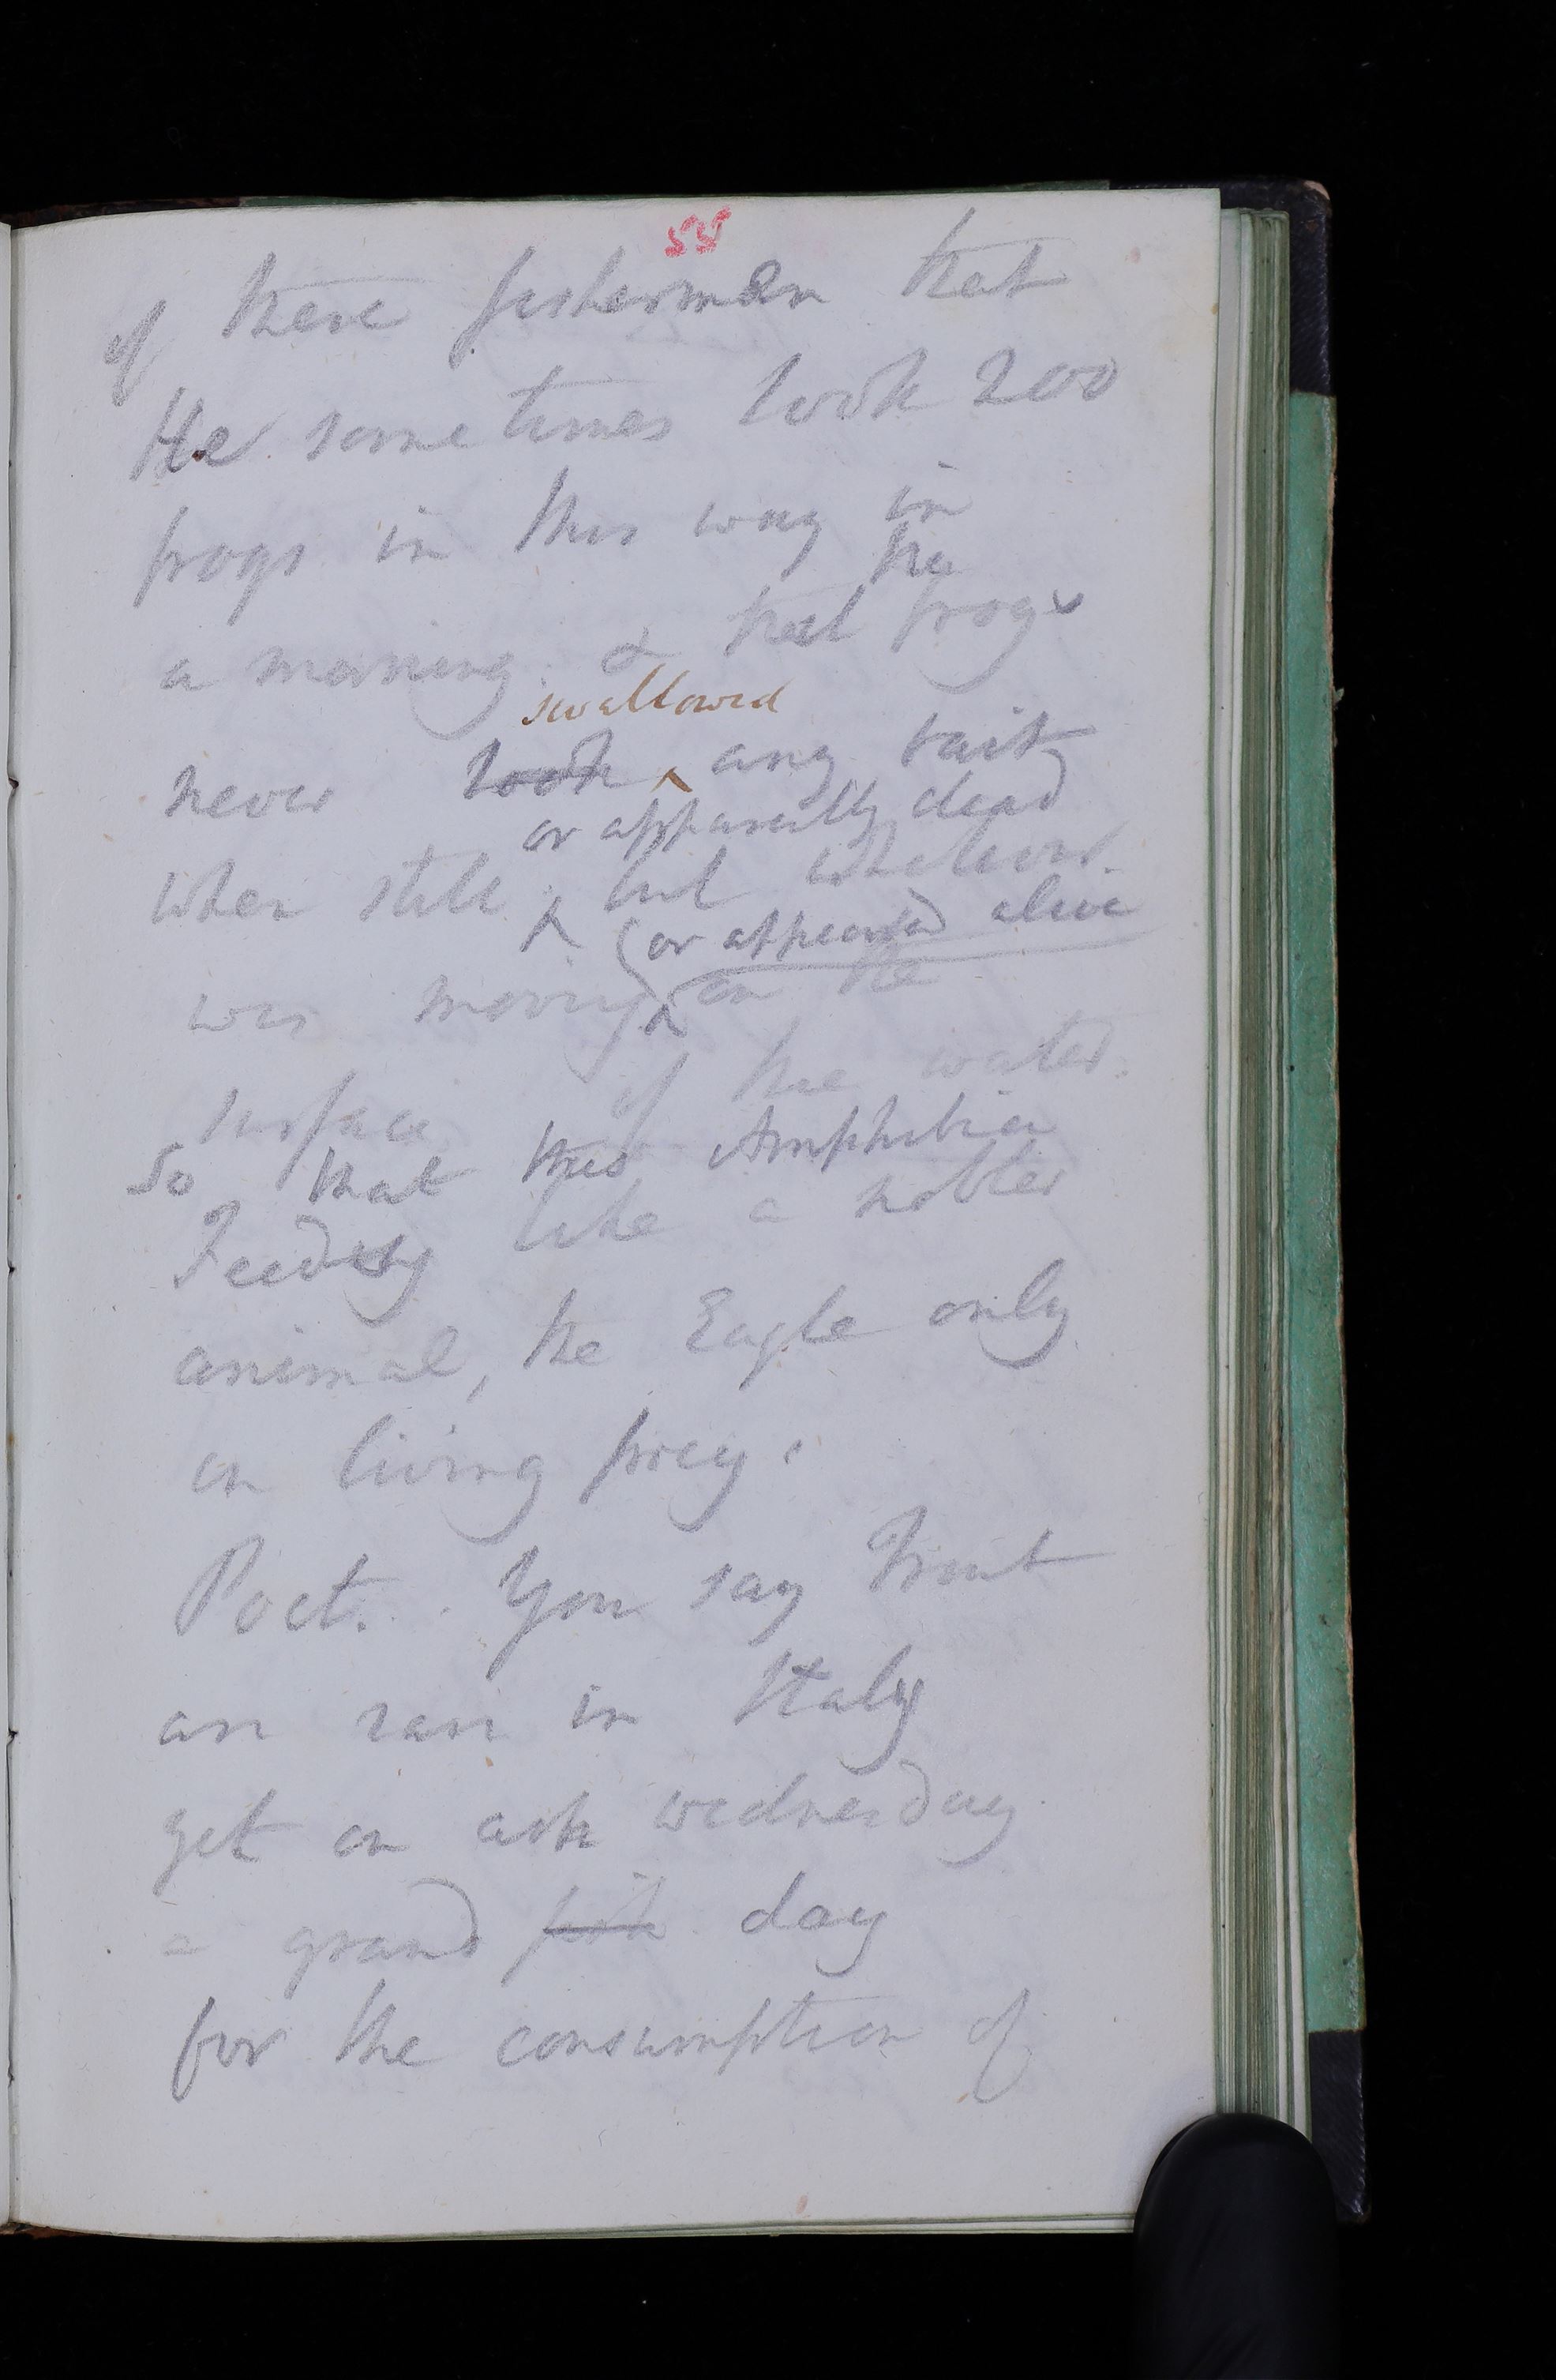 55
of these fisherman that
He some times took 200
frogs in this way in
a morning & that the frogs
swallowed
never took ^ any bait
or apparently dead
when still ^ but whatever
(or appeared alive
was moving ^ on the
surface of the water.
So that this Amphibia
Feeding like a nobler
animal, the Eagle only
on living prey.
Poet. You say Trout
are rare in Italy
yet on ash wednesday
a grand fish day
for the consumption of